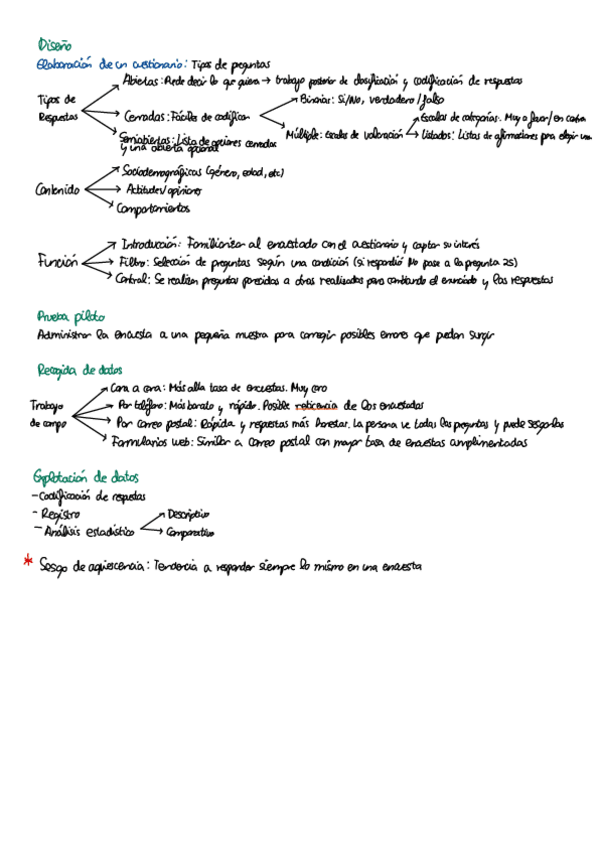 Diseño
Elaboración de un cuestionario: Tipos de preguntas
Tipos de Respuestas
Abiertas: Puede decir lo que quiera → trabajo posterior de clasificación y codificación de respuestas
Cerradas: Fáciles de codificar
Binarias: Si/No, verdadero/falso
Múltiple: Escalas de valoración
Escalas de categorías. Muy a favor/ en contra
Listados: Listas de afirmaciones para elegir una
Semiabiertas: Lista de opciones cerradas
y una abierta opcional
Contenido
Sociodemográficas (género, edad, etc)
Actitudes/opiniones
Comportamientos
Función
Introducción: Familiarizar al encuestado con el cuestionario y captar su interés
Filtro: Selección de preguntas según una condición (si respondió No pase a la pregunta 25)
Control: Se realizan preguntas parecidas a otras realizadas pero cambiando el enunciado y las respuestas
Prueba piloto
Administrar la encuesta a una pequeña muestra para corregir posibles errores que puedan surgir
Recogida de datos
Trabajo de campo
Cara a cara: Más alta tasa de encuestas. Muy caro
Por teléfono: Más barato y rápido. Posible reticencia de los encuestados
Por correo postal: Rápida y respuestas más honestas. La persona ve todas las preguntas y puede sesgarlas
Formularios web: Similar a correo postal con mayor tasa de encuestas cumplimentadas
Explotación de datos
- Codificación de respuestas
- Registro
- Análisis estadístico
Descriptivo
Comparativo
* Sesgo de aquiescencia: Tendencia a responder siempre lo mismo en una encuesta